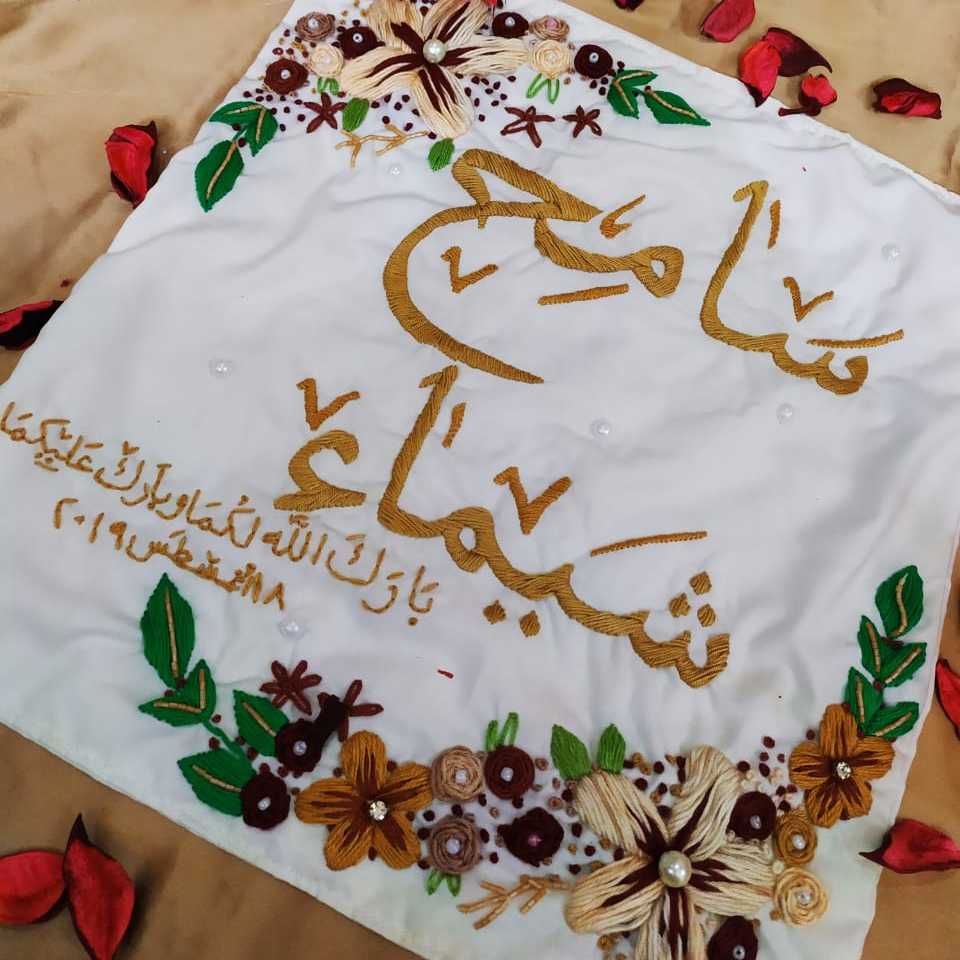 سَامِح
شَيْمَاء
بَارَكَ اللَّه لَكُمَا وبَارَكَ عَلَيْكِمَا
١٨ اغسطس ٢٠١٩